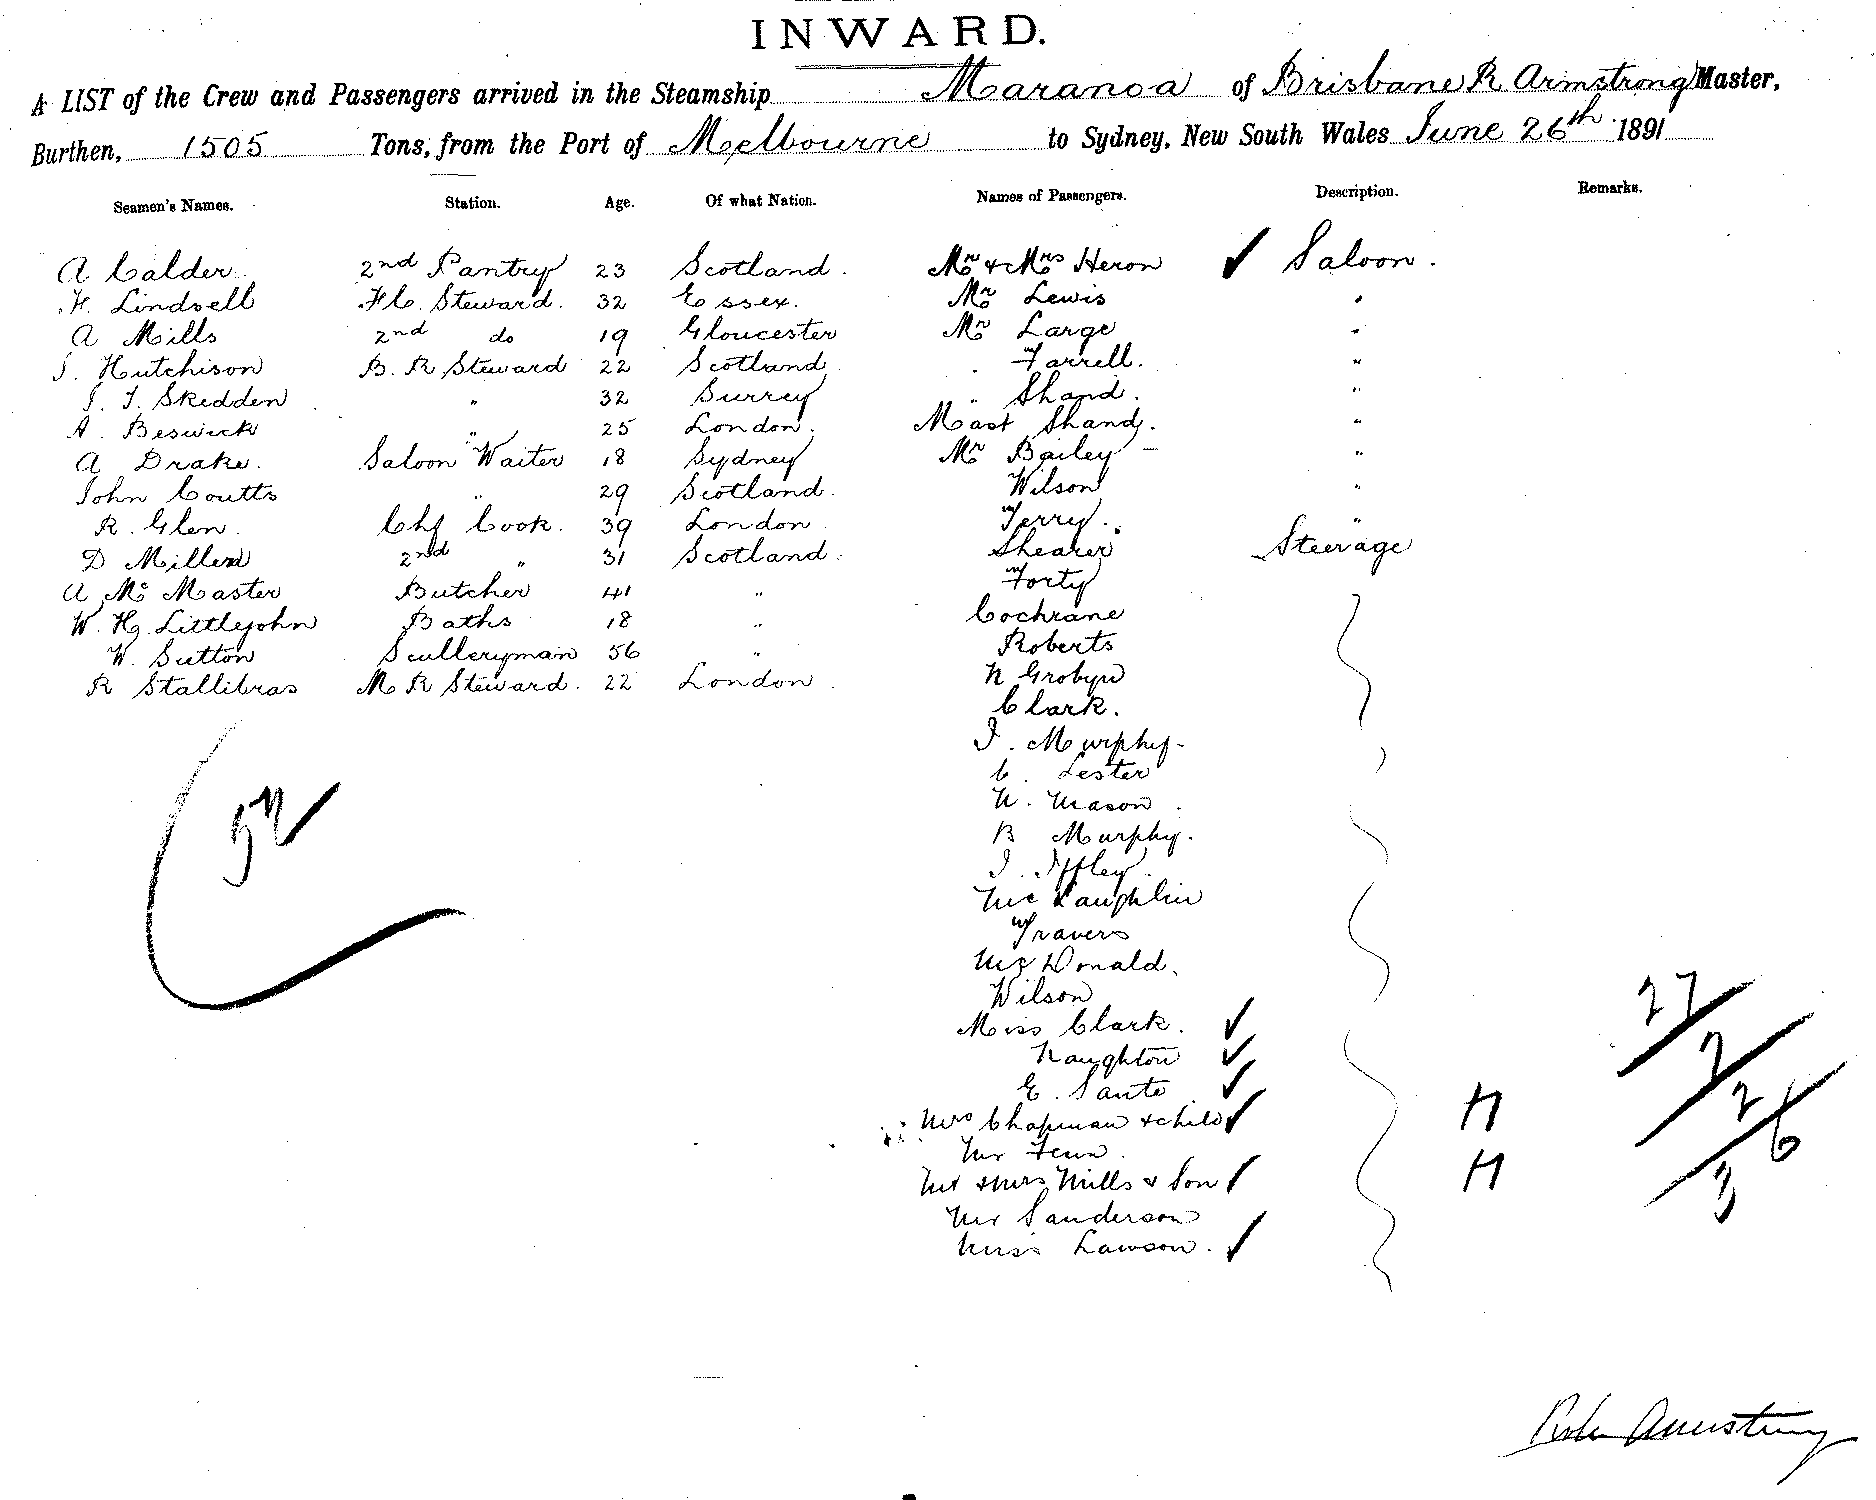 INWARD.
A LIST of the Crew and Passengers arrived in the Steamship Maranoa of Brisbane R Armstrong Master,
Burthen, 1505 Tons, from the Port of Melbourne to Sydney, New South Wales June 26th 1891
Seamen's Names. Station. Age. Of what Nation. Names of Passengers. Description. Remarks.
A Calder 2nd Pantry 23 Scotland. Mr & Mrs Heron ✓ Saloon.
H. Lindsell Steward. 32 Essex. Mr Lewis "
A Mills 2nd do 19 Gloucester Mr Large "
J. Hutchison B. R Steward 22 Scotland " Farrell. "
J. T. Skedden " 32 Surrey " Shand. "
A. Beswick " 25 London. Mast Shand. "
A Drake. Saloon Waiter 18 Sydney Mr Bailey - "
John Coutts " 29 Scotland. Wilson "
R. Glen. Chf Cook. 39 London Terry. "
D Miller 2nd " 31 Scotland. Shearer Steerage
A Mc Master Butcher 41 " Forty
W. H. Littlejohn Baths 18 " Cochrane
W. Sutton Sculleryman 56 " Roberts
R Stallibras M R Steward. 22 London. N Grobyn
Clark.
J. Murphy.
C. Lester
N. Mason
B Murphy.
J. Iffley.
McLaughlin
Travers
McDonald.
Wilson
Miss Clark. ✓
Naughton ✓
E. Sante ✓
Mrs Chapman & child ✓ H
Mr Fenn.
Mr & Mrs Mills & Son ✓ H
Mr Sanderson
Miss Lawson. ✓
52
27
2
2 6
3
Armstrong